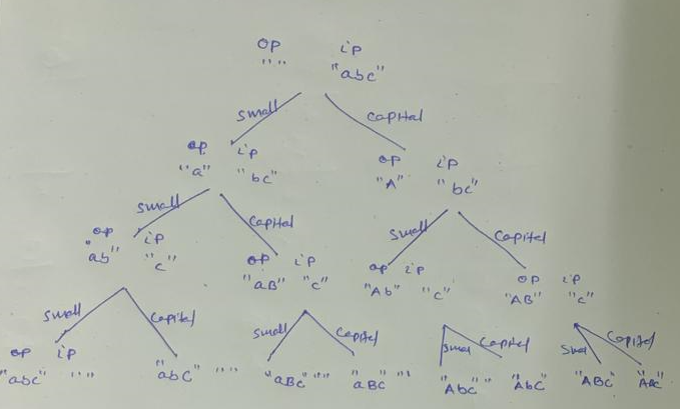 op ip
" " "abc"
small capital
op ip op ip
"a" "bc" "A" "bc"
small capital small capital
op ip op ip op ip op ip
"ab" "c" "aB" "c" "Ab" "c" "AB" "c"
small capital small capital smal capital smal capital
op ip
"abc" " " "abC" " " "aBc" " " "aBC" " " "Abc" " "AbC" "ABc"